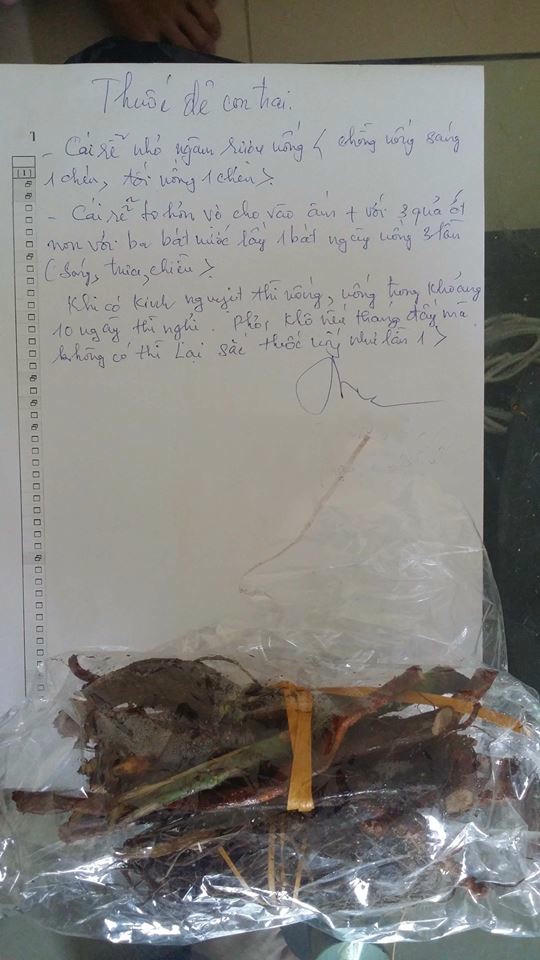 Thuốc đẻ con trai.
- Cái rễ nhỏ ngâm rượu uống < chồng uống sáng
1 chén, tối uống 1 chén >.
- Cái rễ to hơn vò cho vào ấm + với 3 quả ớt
non với ba bát nước lấy 1 bát ngày uống 3 lần
(sáng, trưa, chiều >.
Khi có kinh nguyệt thì uống, uống trong khoảng
10 ngày thì nghỉ. khô nếu tháng đấy mà
không có thì lại sắc thuốc uống như lần 1 >
(1)